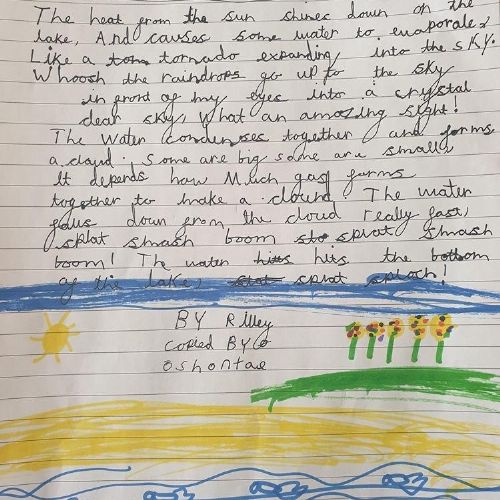 The heat from the sun shines down on the
lake, And causes some water to evaporate.
Like a tornado expanding into the sky.
Whoosh the raindrops go up to the sky
in front of my eyes into a crystal
clear sky, What an amazing sight!
The water condenses together and forms
a cloud. Some are big some are small
It depends how Much gas forms
together to make a cloud. The water
falls down from the cloud really fast,
splat smash boom splat smash
boom! The water hits the bottom
of the lake, splat splosh!
BY Riley
copied BY
oshontae